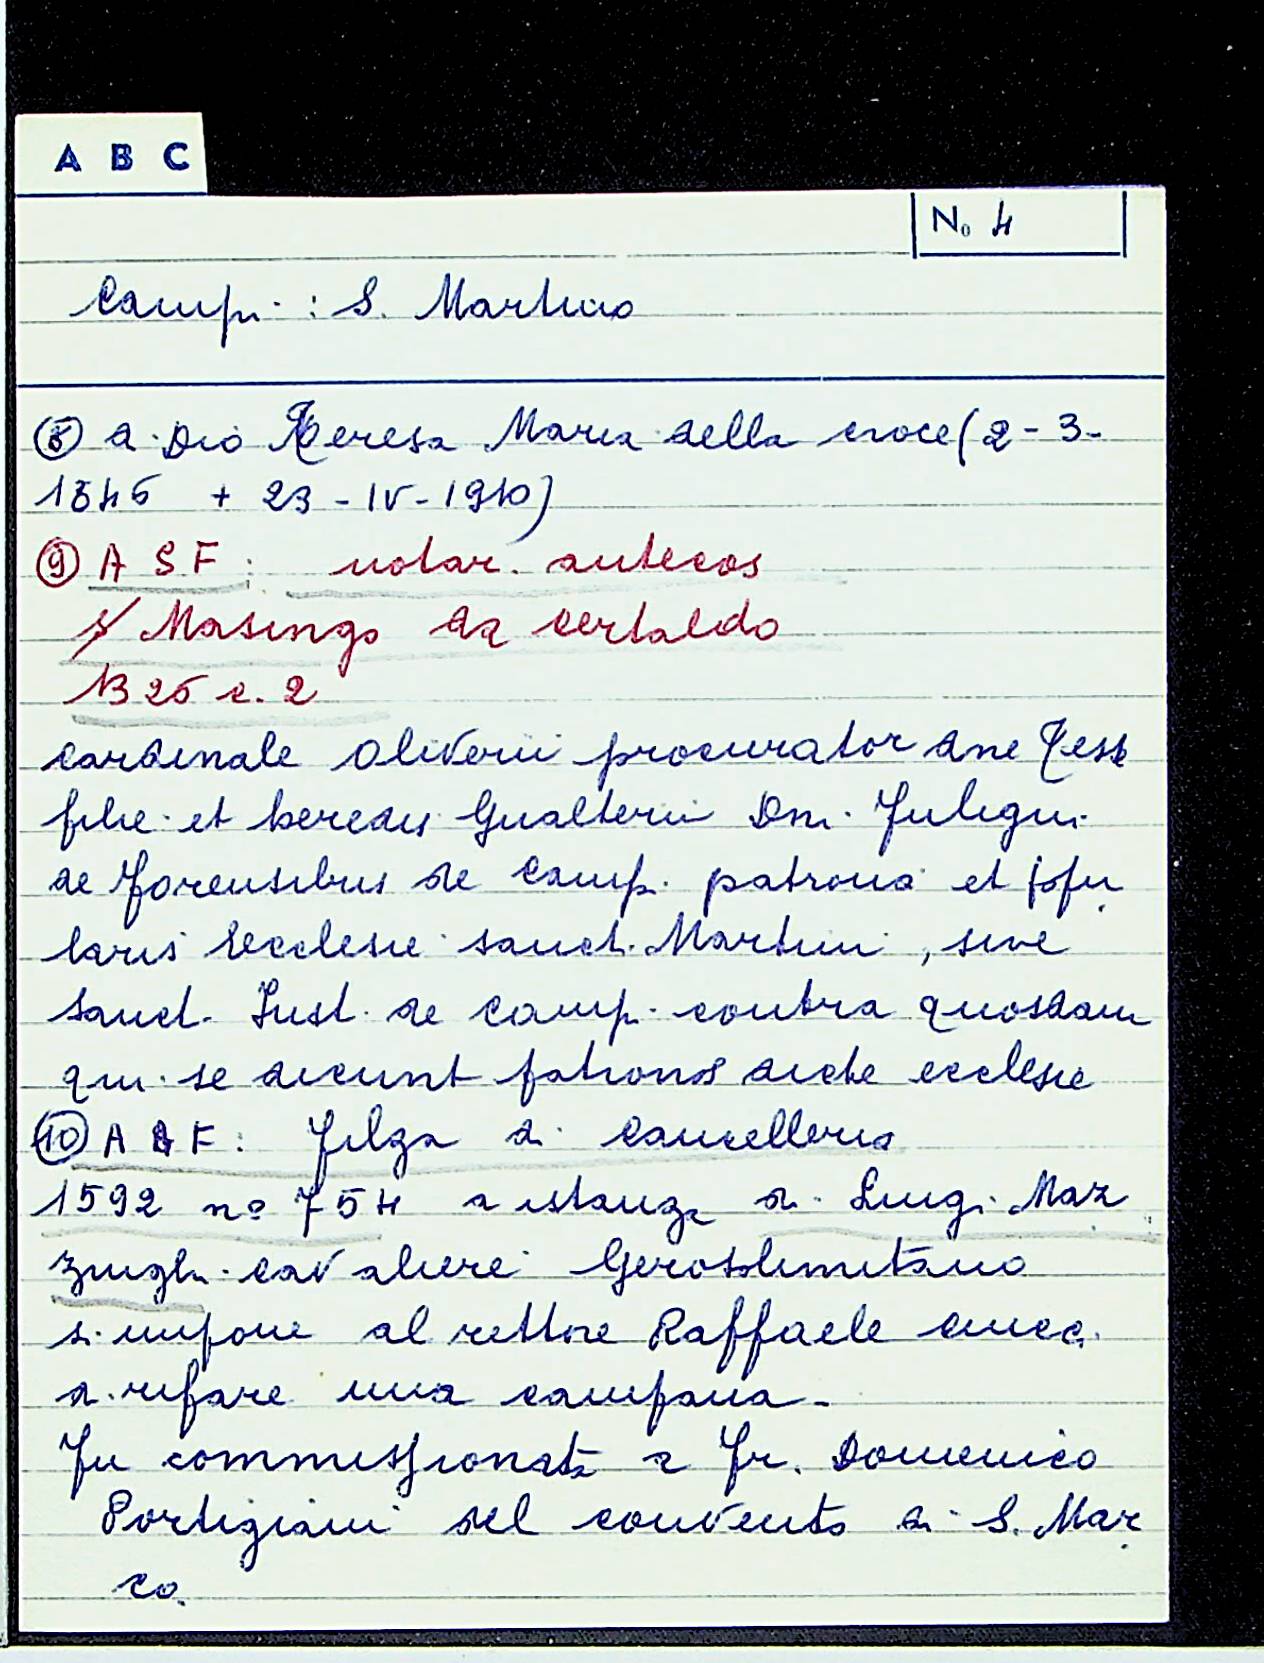 A B C
No 4
Camp. : S. Martino
⑧ a. Dio Teresa Maria della croce (2 - 3 -
1846 + 23 - IV - 1910)
⑨ A S F : notar. antecos
Masingo da Certaldo
1325 c. 2
Cardinale Oliverii procurator dne Tess
filie et heredis Gualterii Dni.
de Forensibus de Camp. patrona et
laris Ecclesie sanct. Martini, sive
sanct. Iust. de Camp. contra quosdam
qui se dicunt patronos dicte ecclesie
⑩ A S F : Filza di Cancelleria
1592 n° 754 a istanza di Luigi Maz
zinghi cavaliere Gerosolimitano
si impone al rettore Raffaele
a rifare una campana -
Fu commissionata a Fr. Domenico
Portigiani del convento di S. Mar
co.